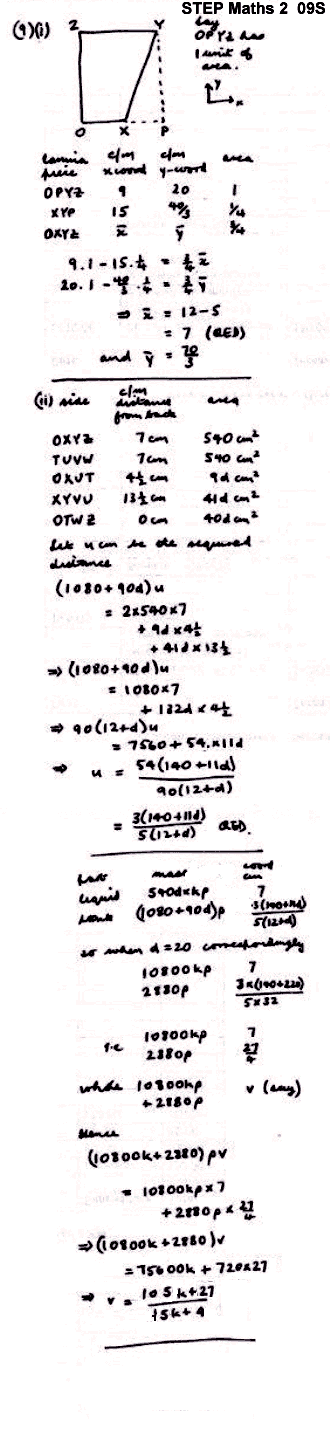 STEP Maths 2 09S
(9)(i)
Z Y
say
OPYZ has
1 unit of
area.
y
x
O X P
lamina piece c/m x coord c/m y-coord area
OPYZ 9 20 1
XYP 15 40/3 1/4
OXYZ x̄ ȳ 3/4
9.1 - 15.1/4 = 3/4 x̄
20.1 - 40/3 . 1/4 = 3/4 ȳ
⇒ x̄ = 12 - 5
= 7 (QED)
and ȳ = 70/3
(ii) side c/m distance from back area
OXYZ 7cm 540 cm²
TUVW 7cm 540 cm²
OXUT 4½ cm 9d cm²
XYVU 13½ cm 41d cm²
OTWZ 0 cm 40d cm²
Let u cm be the required
distance
(1080+90d)u
= 2x540x7
+ 9d x 4½
+ 41d x 13½
⇒ (1080+90d)u
= 1080x7
+ 132d x 4½
⇒ 90(12+d)u
= 7560 + 54.x11d
⇒ u = 54(140+11d) / 90(12+d)
= 3(140+11d) / 5(12+d) QED.
part mass coord cm
liquid 540dxkρ 7
tank (1080+90d)ρ 3(140+11d) / 5(12+d)
so when d=20 correspondingly
10800kρ 7
2880ρ 3x(140+220) / 5x32
i.e 10800kρ 7
2880ρ 27/4
whole 10800kρ v (say)
+ 2880ρ
Hence
(10800k+2880)ρv
= 10800kρ x 7
+ 2880ρ x 27/4
⇒ (10800k+2880)v
= 75600k + 720x27
⇒ v = 105k+27 / 15k+4